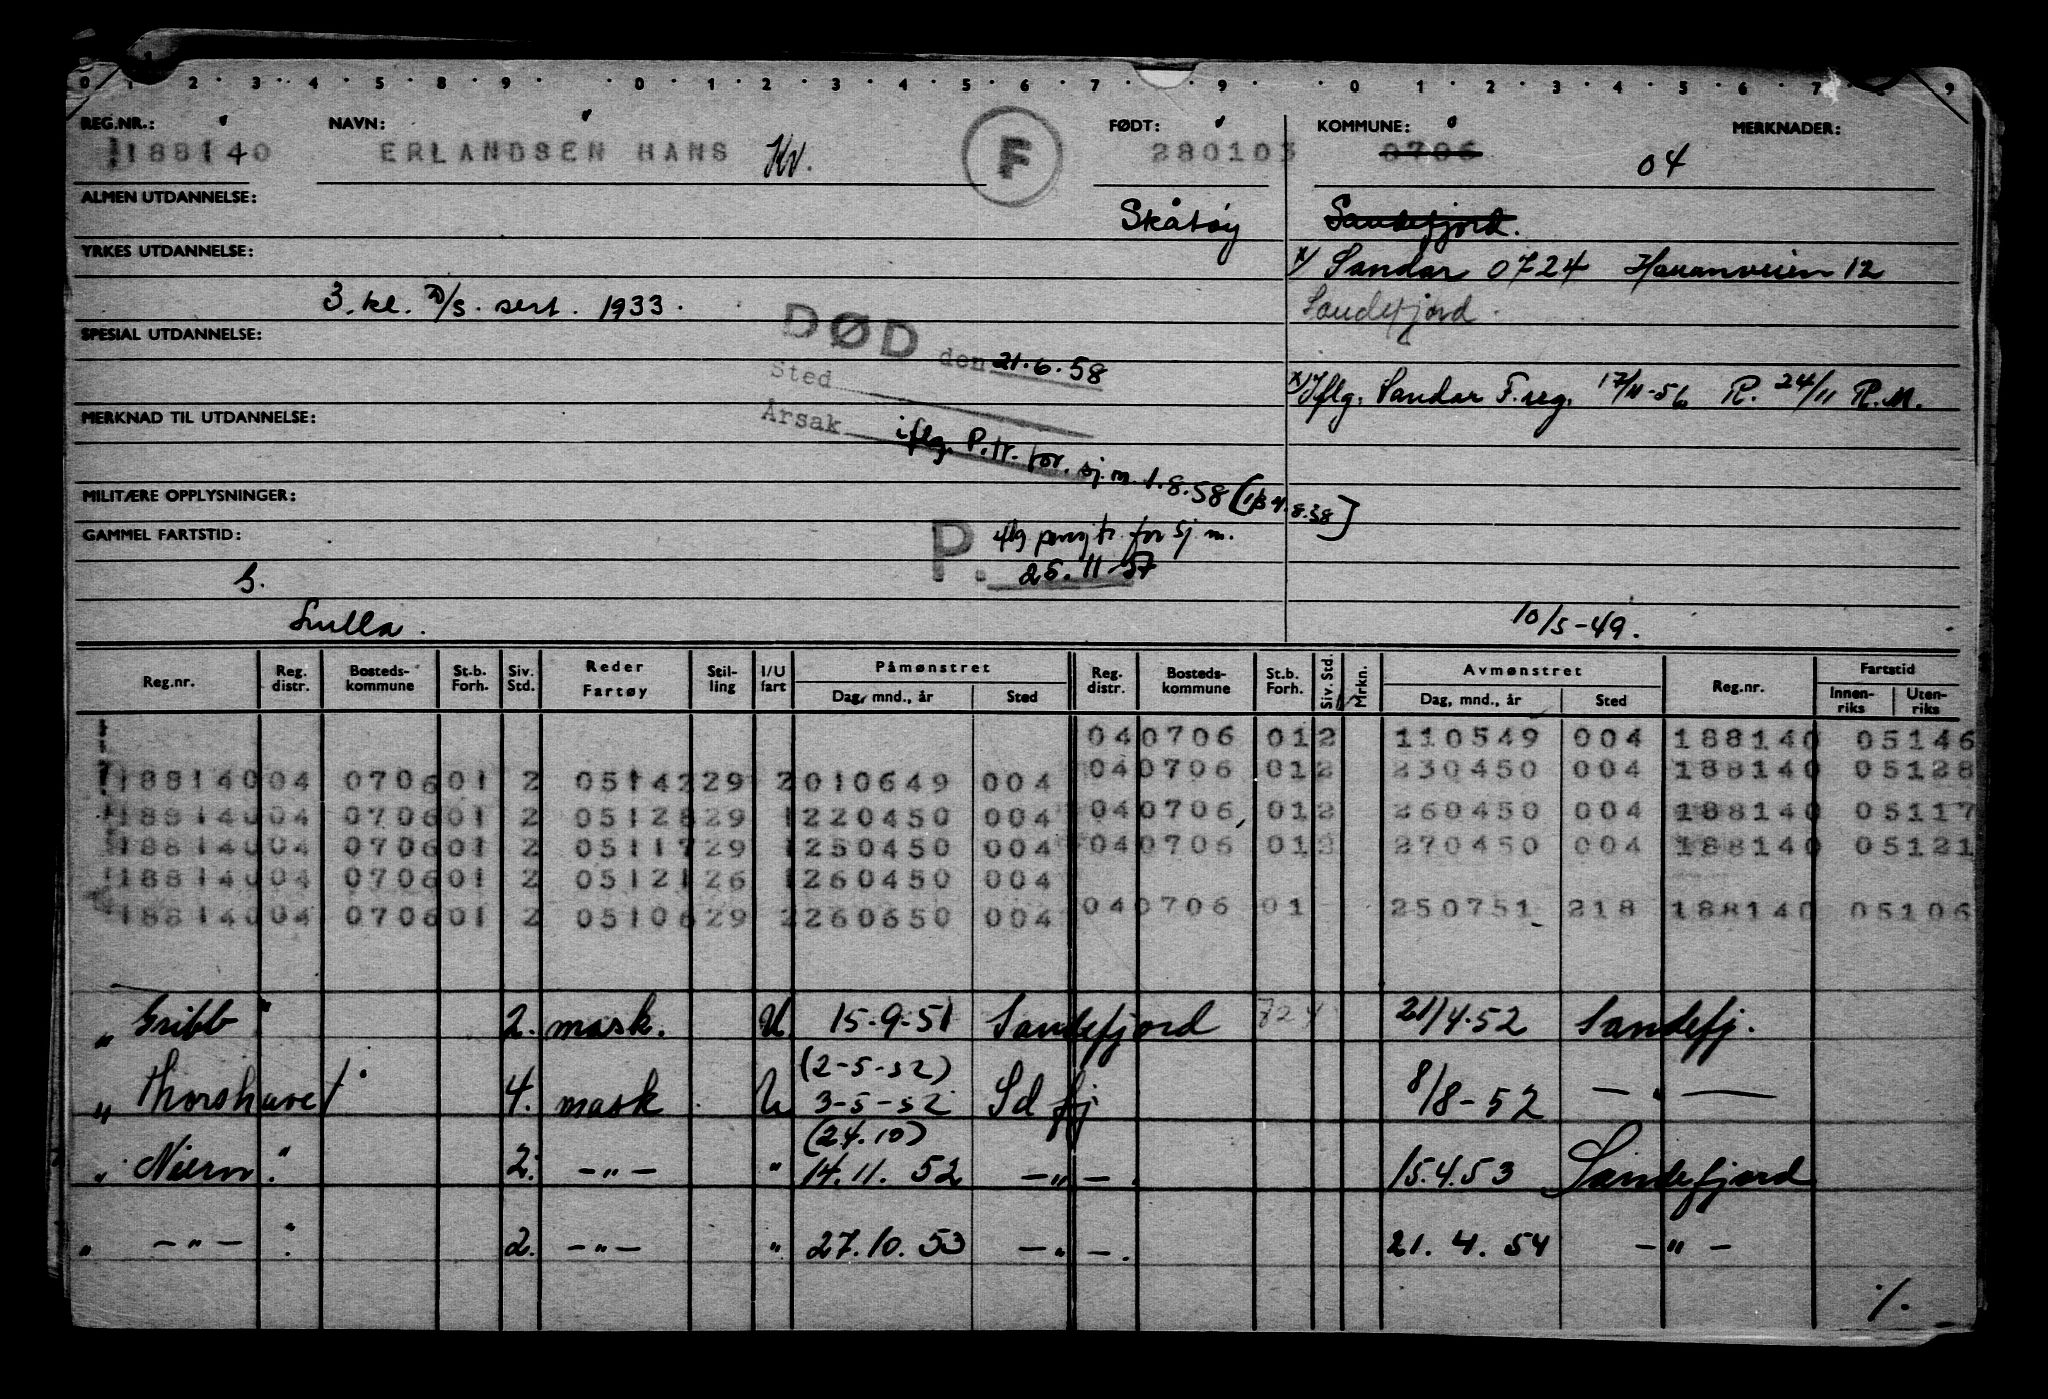 REG.NR.: NAVN: FØDT: KOMMUNE: MERKNADER:
188140 ERLANDSEN HANS Kv. F 280103 0706 04
ALMEN UTDANNELSE: Skåtøy Sandefjord.
YRKES UTDANNELSE: x) Sandar 0724 Havanveien 12
3. kl. D/S. sert. 1933. Sandefjord.
SPESIAL UTDANNELSE: DØD den 21.6.58
Sted
x) Iflg. Sandar F.reg. 17/11-56 R. 24/11 R.M.
MERKNAD TIL UTDANNELSE: Årsak
iflg. P.tr. for. sj.m. 1.8.58 (1/3 4.8.58)
MILITÆRE OPPLYSNINGER:
GAMMEL FARTSTID: P. iflg pensjtr. for sj.m.
G. 25.11-57
10/5-49.
Reg.nr. Reg. distr. Bosteds-kommune St.b. Forh. Siv. Std. Reder Fartøy Stil-ling I/U fart Påmønstret Dag, mnd., år Sted Reg. distr. Bosteds-kommune St.b. Forh. Siv. Std. Mrkn. Avmønstret Dag, mnd., år Sted Reg.nr. Fartstid Innen-riks Uten-riks
04 0706 01 2 110549 004 188140 05146
188140 04 0706 01 2 05142 29 2 010649 004 04 0706 01 2 230450 004 188140 05128
188140 04 0706 01 2 05128 29 1 220450 004 04 0706 01 2 260450 004 188140 05117
188140 04 0706 01 2 05117 29 1 250450 004 04 0706 01 2 270450 004 188140 05121
188140 04 0706 01 2 05121 26 1 260450 004
188140 04 0706 01 2 05106 29 2 260650 004 04 0706 01 250751 218 188140 05106
" Gribb " 2. mask. U 15-9-51 Sandefjord 724 21/4.52 Sandefj.
(2-5-52)
" Thorshavet " 4. mask U 3-5-52 Sd fj 8/8-52 — " —
(24.10)
" Nierm " 2. - " - " 14.11.52 - " - 15.4.53 Sandefjord
" - " - " 2. - " - " 27.10.53 - " - 21.4.54 - " -
%.